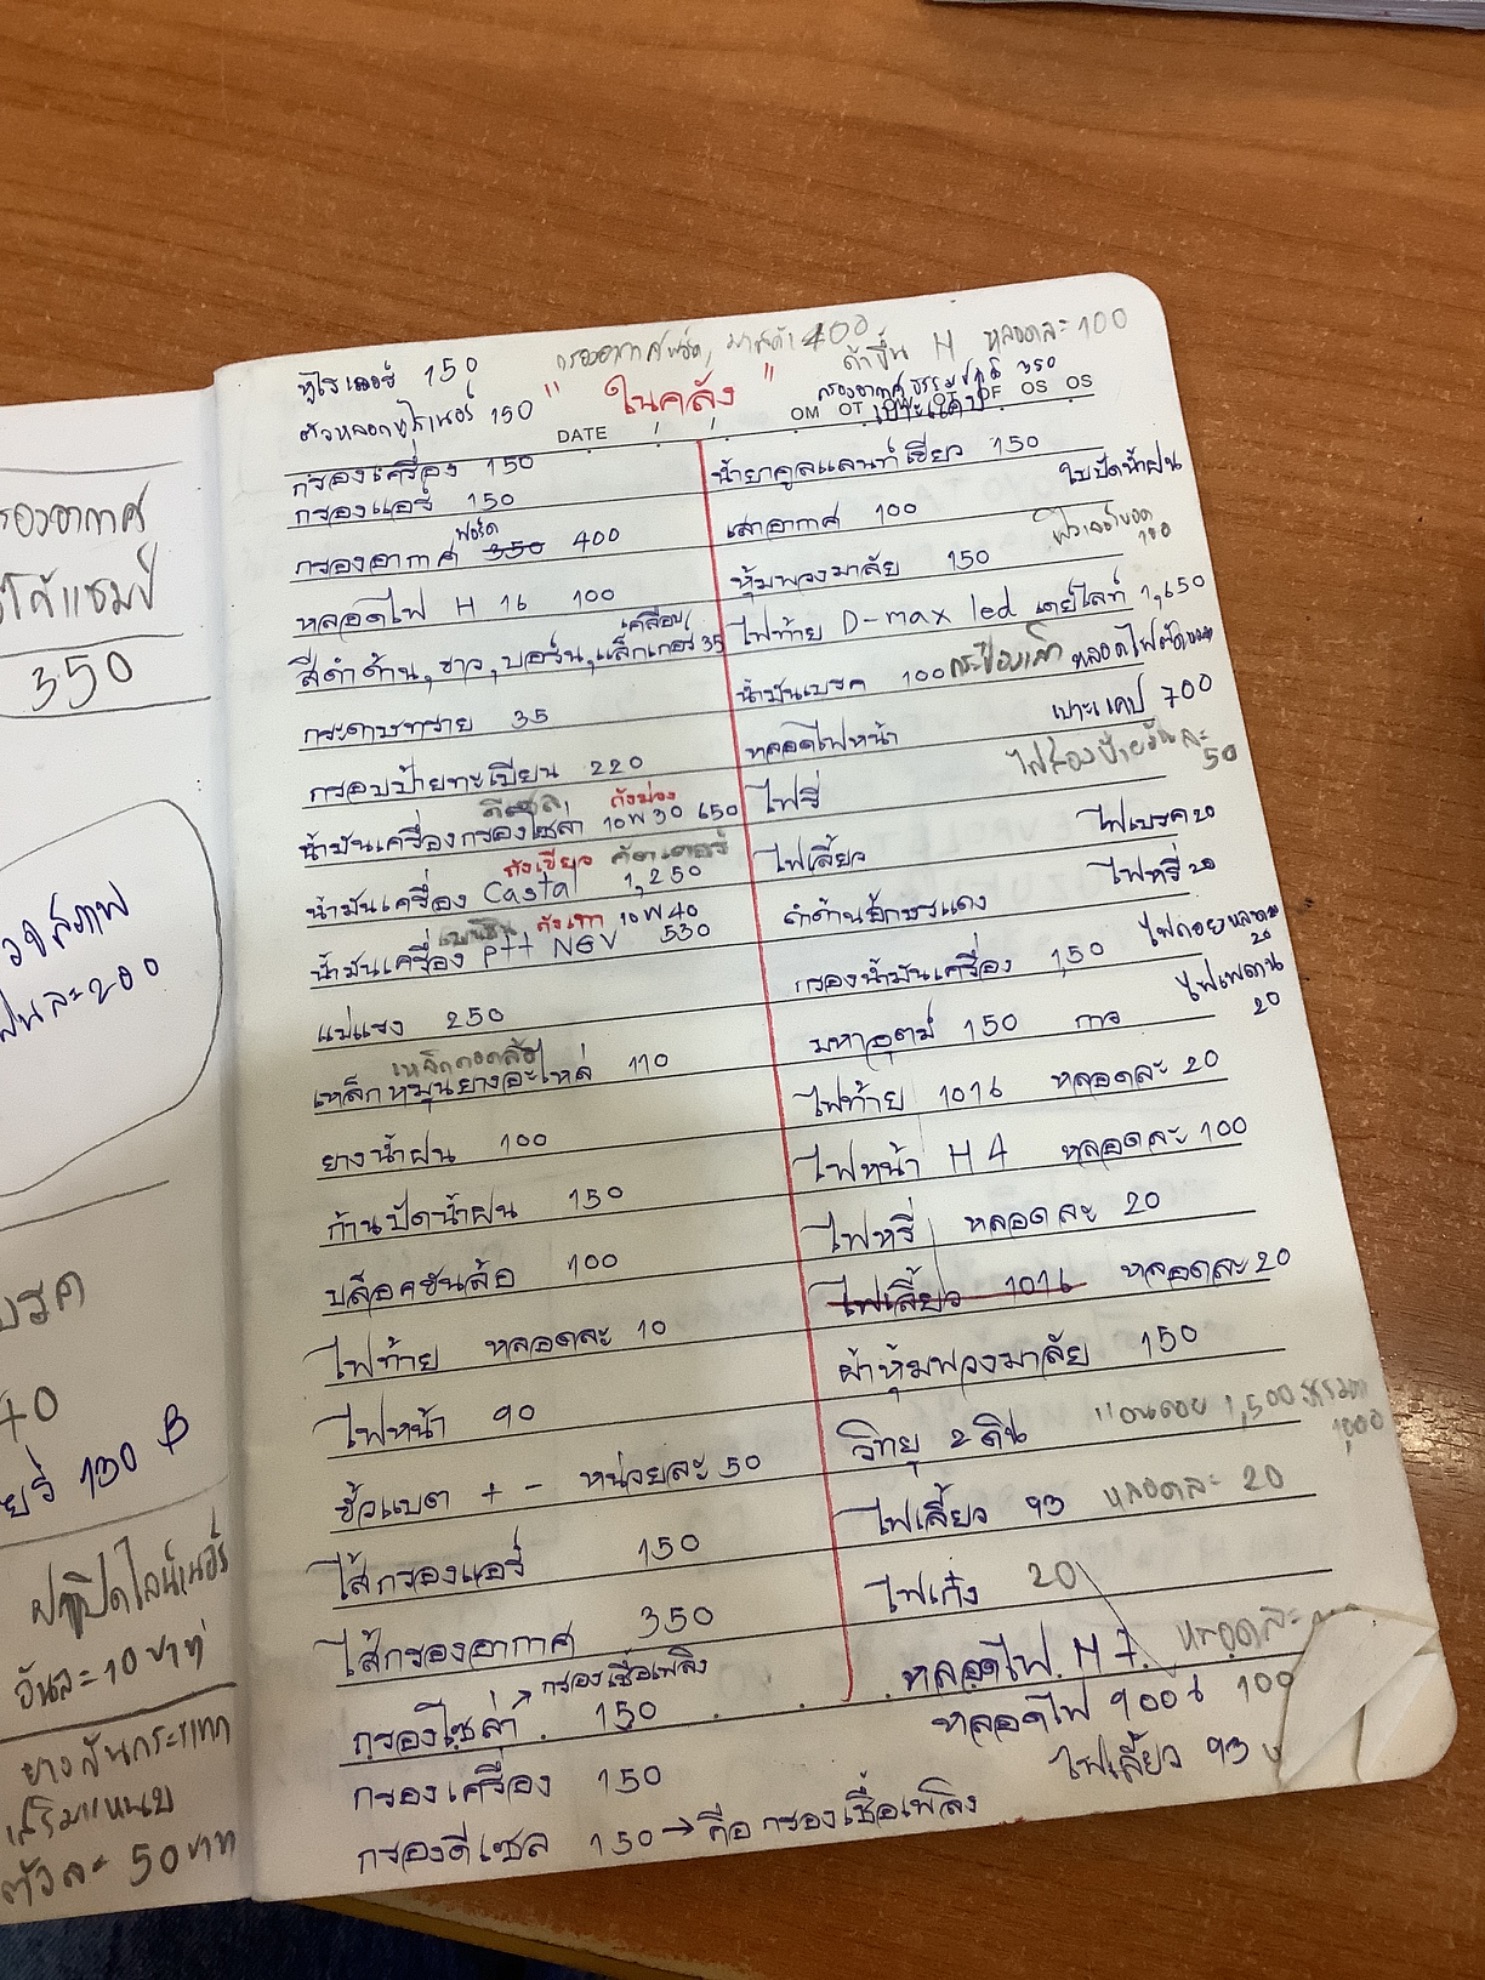 รองอากาศ
350
วงสภาพ
ผืนละ 200
บรค
40
130 ฿
ฝาปิดไลน์เนอร์
อันละ 10 บาท
ยางกันกระแทก
เสริมแหนบ
ตัวละ 50 บาท
กรองอากาศฟอร์ด, มาสด้า 400
ถ้าขึ้น H หลอดละ 100
150
150
"ในคลัง"
กรองอากาศ ธรรมชาติ 350
เบาะแคป
DATE
OM OT OW OT OF OS OS
กรองเครื่อง 150
กรองแอร์ 150
ฟอร์ด
กรองอากาศ 350 400
หลอดไฟ H 16 100
เคลือบ
สีดำด้าน, ขาว, บอร์น, แล็กเกอร์ 35
กระดาษทราย 35
กรอบป้ายทะเบียน 220
ดีเซล ถังม่วง
น้ำมันเครื่องกรองโซล่า 10W30 650
ถังเขียว
น้ำมันเครื่อง Castal 1,250
เบนซิน ถังเทา 10W40
น้ำมันเครื่อง PTT NGV 530
แม่แรง 250
เหล็กถอดล้อ
เหล็กหมุนยางอะไหล่ 110
ยางน้ำฝน 100
ก้านปัดน้ำฝน 150
บล็อคขันล้อ 100
ไฟท้าย หลอดละ 10
ไฟหน้า 90
ขั้วแบต + - หน่วยละ 50
ไส้กรองแอร์ 150
ไส้กรองอากาศ 350
กรองโซล่า → กรองเชื้อเพลิง 150
กรองเครื่อง 150
กรองดีเซล 150 → คือ กรองเชื้อเพลิง
น้ำยาคูลแลนท์เขียว 150
ใบปัดน้ำฝน
เสาอากาศ 100
100
หุ้มพวงมาลัย 150
ไฟท้าย D-max led เดย์ไลท์ 1,650
น้ำมันเบรค 100 กระป๋องเล็ก
หลอดไฟหน้า เบาะแคป 700
ไฟส่องป้ายอันละ 50
ไฟรี่
ไฟเบรค 20
ไฟเลี้ยว
ไฟหรี่ 20
ดำด้านอักษรแดง
ไฟถอยหลอดละ 20
กรองน้ำมันเครื่อง 150
ไฟเพดาน 20
มหาอุตม์ 150 กาว
ไฟท้าย 1016 หลอดละ 20
ไฟหน้า H4 หลอดละ 100
ไฟหรี่ หลอดละ 20
ไฟเลี้ยว 1016 หลอดละ 20
ผ้าหุ้มพวงมาลัย 150
วิทยุ 2 ดิน 1,500
1,000
ไฟเลี้ยว 93 หลอดละ 20
ไฟเก๋ง 20
หลอดไฟ H7 หลอดละ
หลอดไฟ 9006 100
ไฟเลี้ยว 93